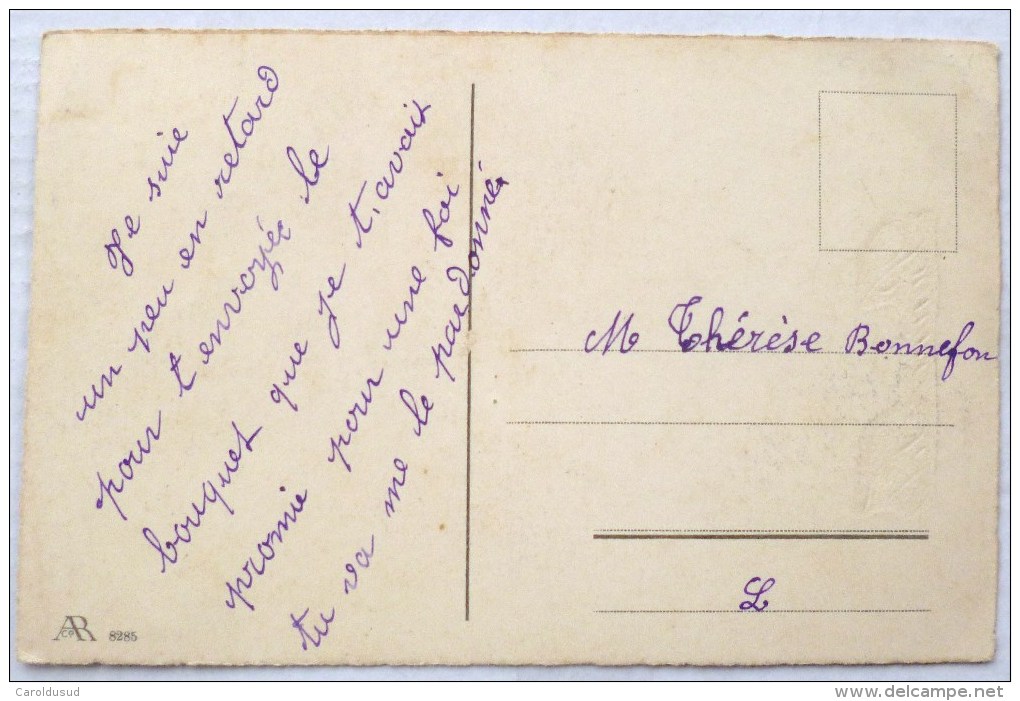 Je suie
un peu en retard
pour t envoyée le
bouquet que je t'avait
promie pour une foi
tu va me le pardonné
M Thérèse Bonnefon
L
AR
Co
8285
Caroldusud
www.delcampe.net